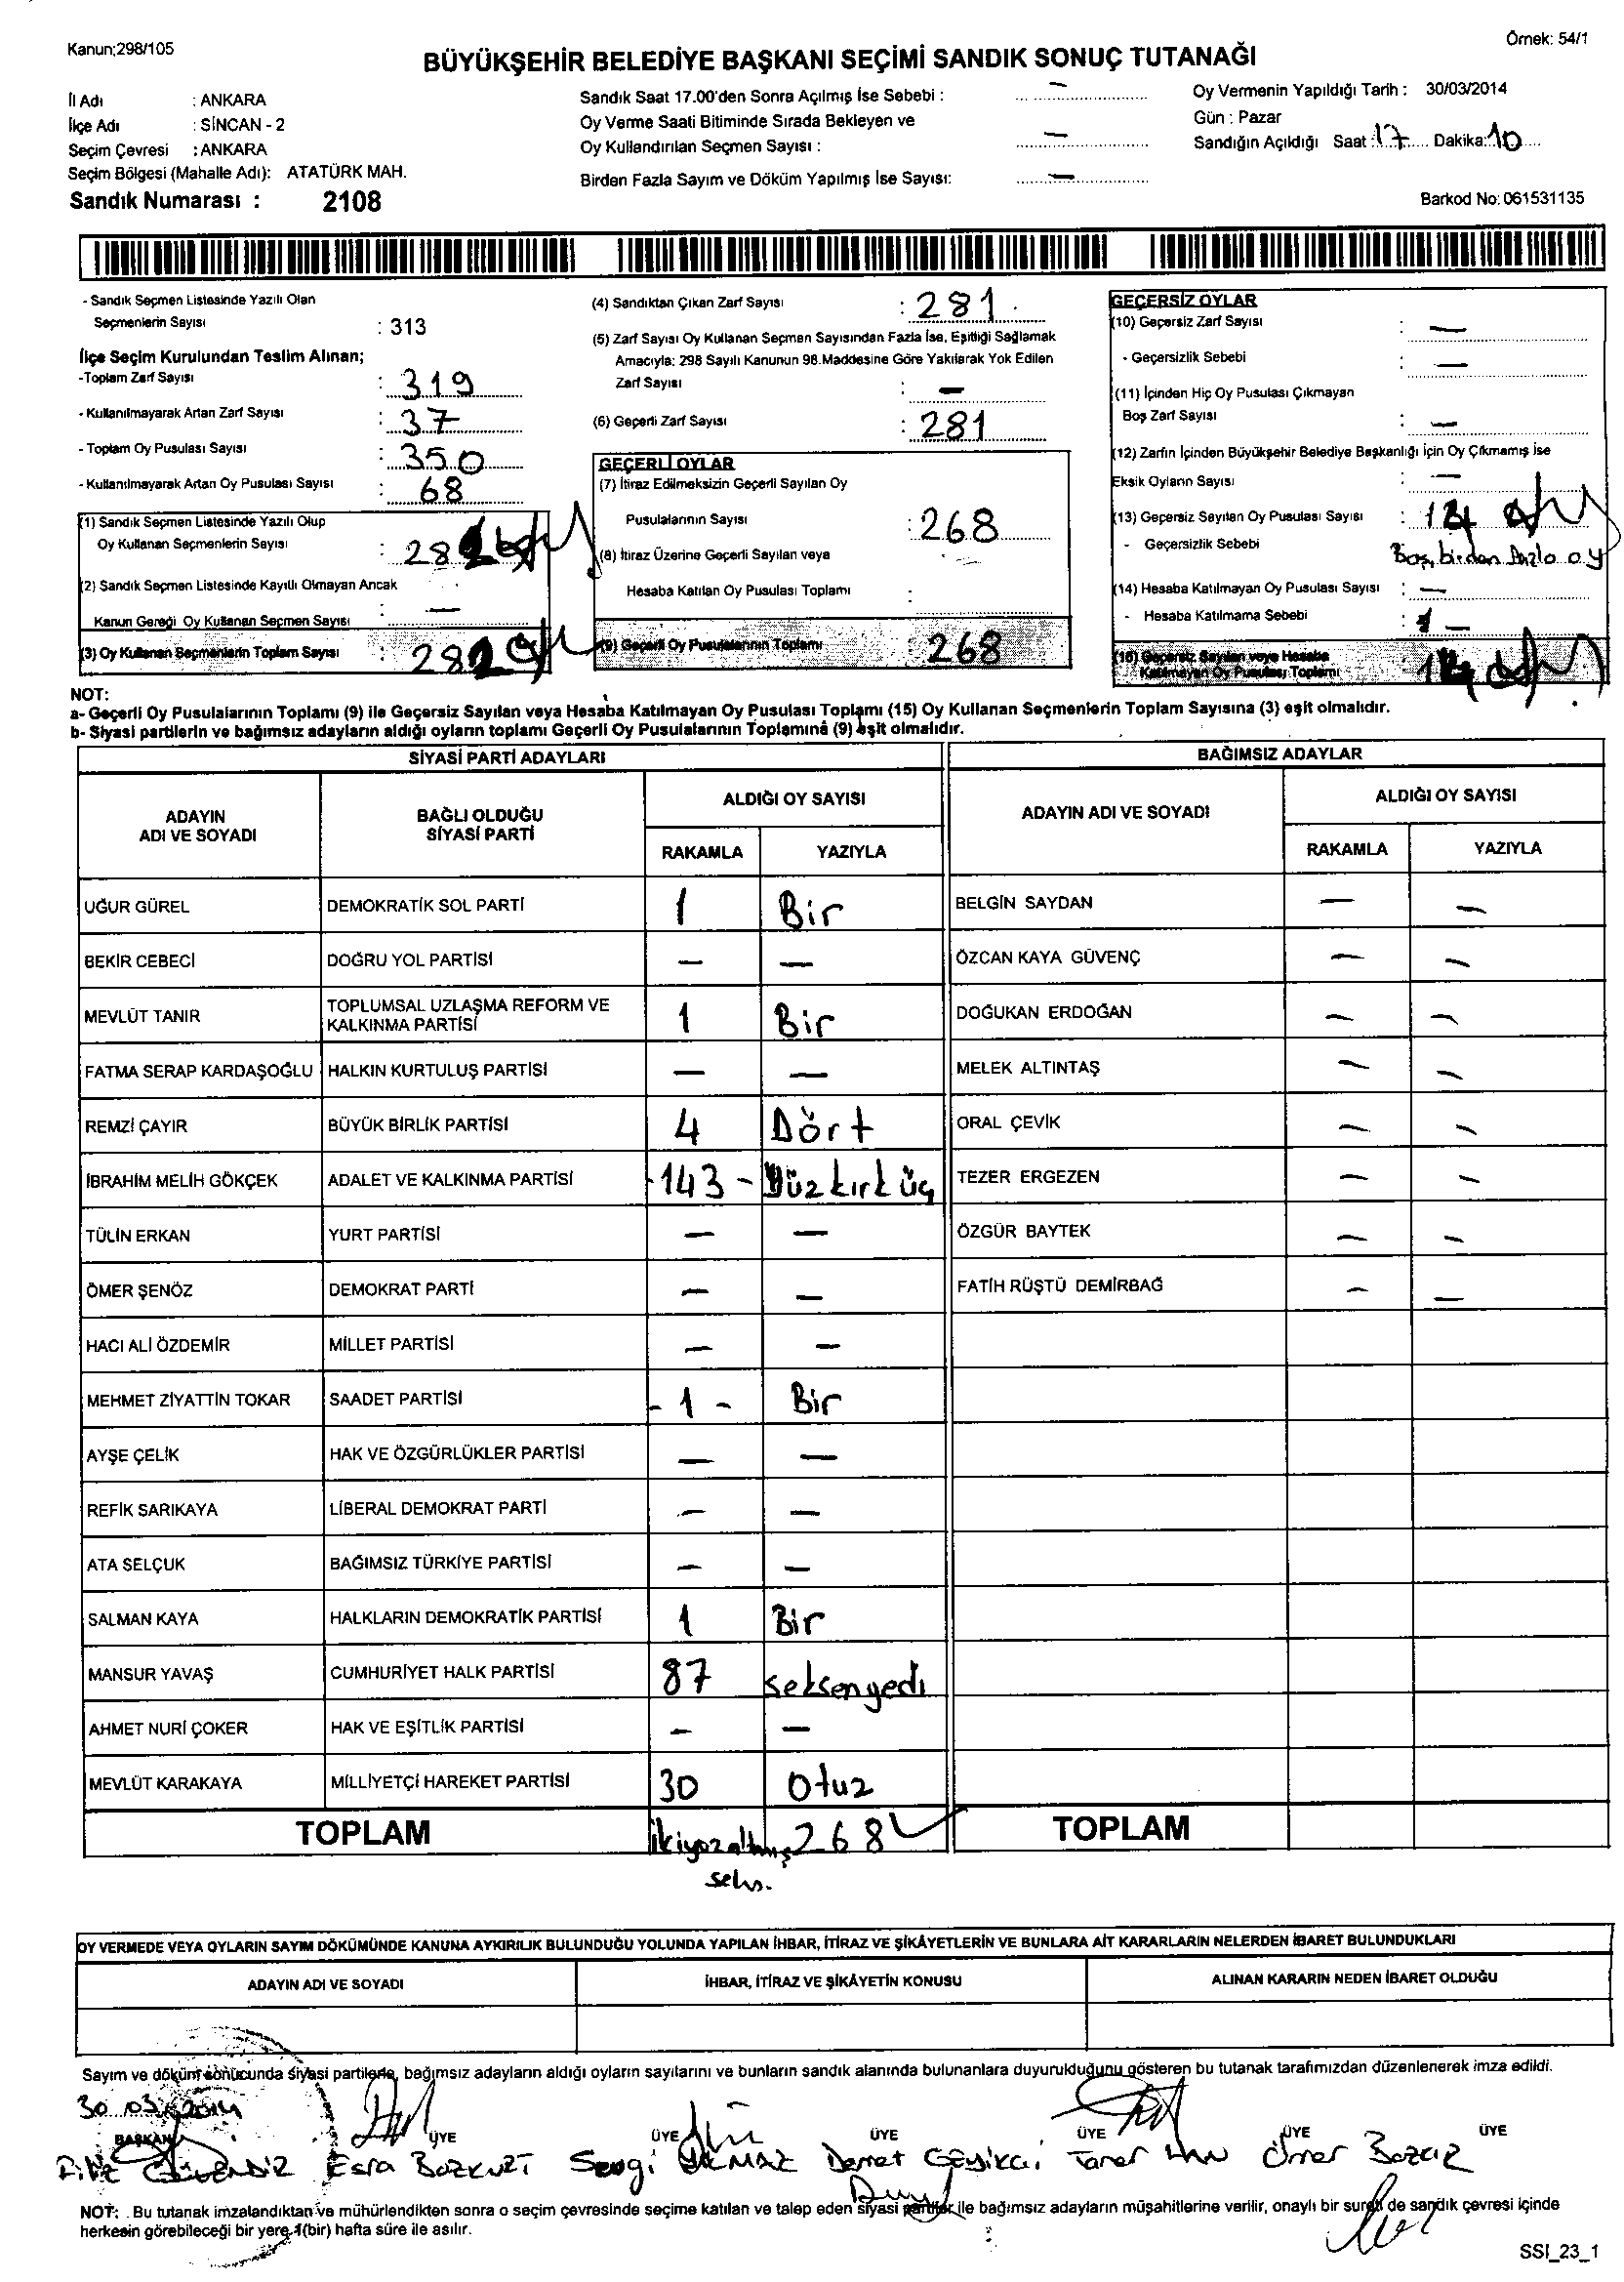 Kanun;298/105
Örnek: 54/1
BÜYÜKŞEHİR BELEDİYE BAŞKANI SEÇİMİ SANDIK SONUÇ TUTANAĞI
İl Adı : ANKARA
İlçe Adı : SİNCAN - 2
Seçim Çevresi : ANKARA
Seçim Bölgesi (Mahalle Adı): ATATÜRK MAH.
Sandık Numarası : 2108
Sandık Saat 17.00'den Sonra Açılmış İse Sebebi : —
Oy Verme Saati Bitiminde Sırada Bekleyen ve
Oy Kullandırılan Seçmen Sayısı : —
Birden Fazla Sayım ve Döküm Yapılmış İse Sayısı: —
Oy Vermenin Yapıldığı Tarih : 30/03/2014
Gün : Pazar
Sandığın Açıldığı Saat : 17 Dakika: 10
Barkod No: 061531135
- Sandık Seçmen Listesinde Yazılı Olan
Seçmenlerin Sayısı : 313
İlçe Seçim Kurulundan Teslim Alınan;
-Toplam Zarf Sayısı : 319
- Kullanılmayarak Artan Zarf Sayısı : 37
- Toplam Oy Pusulası Sayısı : 350
- Kullanılmayarak Artan Oy Pusulası Sayısı : 68
(1) Sandık Seçmen Listesinde Yazılı Olup
Oy Kullanan Seçmenlerin Sayısı :
(2) Sandık Seçmen Listesinde Kayıtlı Olmayan Ancak
Kanun Gereği Oy Kullanan Seçmen Sayısı : —
(3) Oy Kullanan Seçmenlerin Toplam Sayısı :
(4) Sandıktan Çıkan Zarf Sayısı : 281
(5) Zarf Sayısı Oy Kullanan Seçmen Sayısından Fazla İse, Eşitliği Sağlamak
Amacıyla; 298 Sayılı Kanunun 98.Maddesine Göre Yakılarak Yok Edilen
Zarf Sayısı : —
(6) Geçerli Zarf Sayısı : 281
GEÇERLİ OYLAR
(7) İtiraz Edilmeksizin Geçerli Sayılan Oy
Pusulalarının Sayısı : 268
(8) İtiraz Üzerine Geçerli Sayılan veya
Hesaba Katılan Oy Pusulası Toplamı :
(9) Geçerli Oy Pusulalarının Toplamı : 268
GEÇERSİZ OYLAR
(10) Geçersiz Zarf Sayısı : —
- Geçersizlik Sebebi : —
(11) İçinden Hiç Oy Pusulası Çıkmayan
Boş Zarf Sayısı : —
(12) Zarfın İçinden Büyükşehir Belediye Başkanlığı İçin Oy Çıkmamış İse
Eksik Oyların Sayısı : —
(13) Geçersiz Sayılan Oy Pusulası Sayısı :
- Geçersizlik Sebebi Boş, birden fazla oy
(14) Hesaba Katılmayan Oy Pusulası Sayısı : —
- Hesaba Katılmama Sebebi : —
(15) Geçersiz Sayılan veya Hesaba
Katılmayan Oy Pusulası Toplamı :
NOT:
a- Geçerli Oy Pusulalarının Toplamı (9) ile Geçersiz Sayılan veya Hesaba Katılmayan Oy Pusulası Toplamı (15) Oy Kullanan Seçmenlerin Toplam Sayısına (3) eşit olmalıdır.
b- Siyasi partilerin ve bağımsız adayların aldığı oyların toplamı Geçerli Oy Pusulalarının Toplamına (9) eşit olmalıdır.
SİYASİ PARTİ ADAYLARI BAĞIMSIZ ADAYLAR
ADAYIN ADI VE SOYADI BAĞLI OLDUĞU SİYASİ PARTİ ALDIĞI OY SAYISI ADAYIN ADI VE SOYADI ALDIĞI OY SAYISI
RAKAMLA YAZIYLA RAKAMLA YAZIYLA
UĞUR GÜREL DEMOKRATİK SOL PARTİ 1 Bir BELGİN SAYDAN — —
BEKİR CEBECİ DOĞRU YOL PARTİSİ — — ÖZCAN KAYA GÜVENÇ — —
MEVLÜT TANIR TOPLUMSAL UZLAŞMA REFORM VE KALKINMA PARTİSİ 1 Bir DOĞUKAN ERDOĞAN — —
FATMA SERAP KARDAŞOĞLU HALKIN KURTULUŞ PARTİSİ — — MELEK ALTINTAŞ — —
REMZİ ÇAYIR BÜYÜK BİRLİK PARTİSİ 4 Dört ORAL ÇEVİK — —
İBRAHİM MELİH GÖKÇEK ADALET VE KALKINMA PARTİSİ -143- Yüzkırküç TEZER ERGEZEN — —
TÜLİN ERKAN YURT PARTİSİ — — ÖZGÜR BAYTEK — —
ÖMER ŞENÖZ DEMOKRAT PARTİ — — FATİH RÜŞTÜ DEMİRBAĞ — —
HACI ALİ ÖZDEMİR MİLLET PARTİSİ — —
MEHMET ZİYATTİN TOKAR SAADET PARTİSİ - 1 - Bir
AYŞE ÇELİK HAK VE ÖZGÜRLÜKLER PARTİSİ — —
REFİK SARIKAYA LİBERAL DEMOKRAT PARTİ — —
ATA SELÇUK BAĞIMSIZ TÜRKİYE PARTİSİ — —
SALMAN KAYA HALKLARIN DEMOKRATİK PARTİSİ 1 Bir
MANSUR YAVAŞ CUMHURİYET HALK PARTİSİ 87 seksenyedi
AHMET NURİ ÇOKER HAK VE EŞİTLİK PARTİSİ — —
MEVLÜT KARAKAYA MİLLİYETÇİ HAREKET PARTİSİ 30 Otuz
TOPLAM ikiyüzaltmış 268 TOPLAM
OY VERMEDE VEYA OYLARIN SAYIM DÖKÜMÜNDE KANUNA AYKIRILIK BULUNDUĞU YOLUNDA YAPILAN İHBAR, İTİRAZ VE ŞİKÂYETLERİN VE BUNLARA AİT KARARLARIN NELERDEN İBARET BULUNDUKLARI
ADAYIN ADI VE SOYADI İHBAR, İTİRAZ VE ŞİKÂYETİN KONUSU ALINAN KARARIN NEDEN İBARET OLDUĞU
Sayım ve döküm sonucunda siyasi partilerle, bağımsız adayların aldığı oyların sayılarını ve bunların sandık alanında bulunanlara duyurulduğunu gösteren bu tutanak tarafımızdan düzenlenerek imza edildi.
30 03 2014
BAŞKAN ÜYE ÜYE ÜYE ÜYE ÜYE ÜYE
Esra BOZKURT Sevgi YILMAZ Demet Geyikçi Taner Ömer
NOT: Bu tutanak imzalandıktan ve mühürlendikten sonra o seçim çevresinde seçime katılan ve talep eden siyasi partiler ile bağımsız adayların müşahitlerine verilir, onaylı bir sureti de sandık çevresi içinde
herkesin görebileceği bir yere 1(bir) hafta süre ile asılır.
SSI_23_1